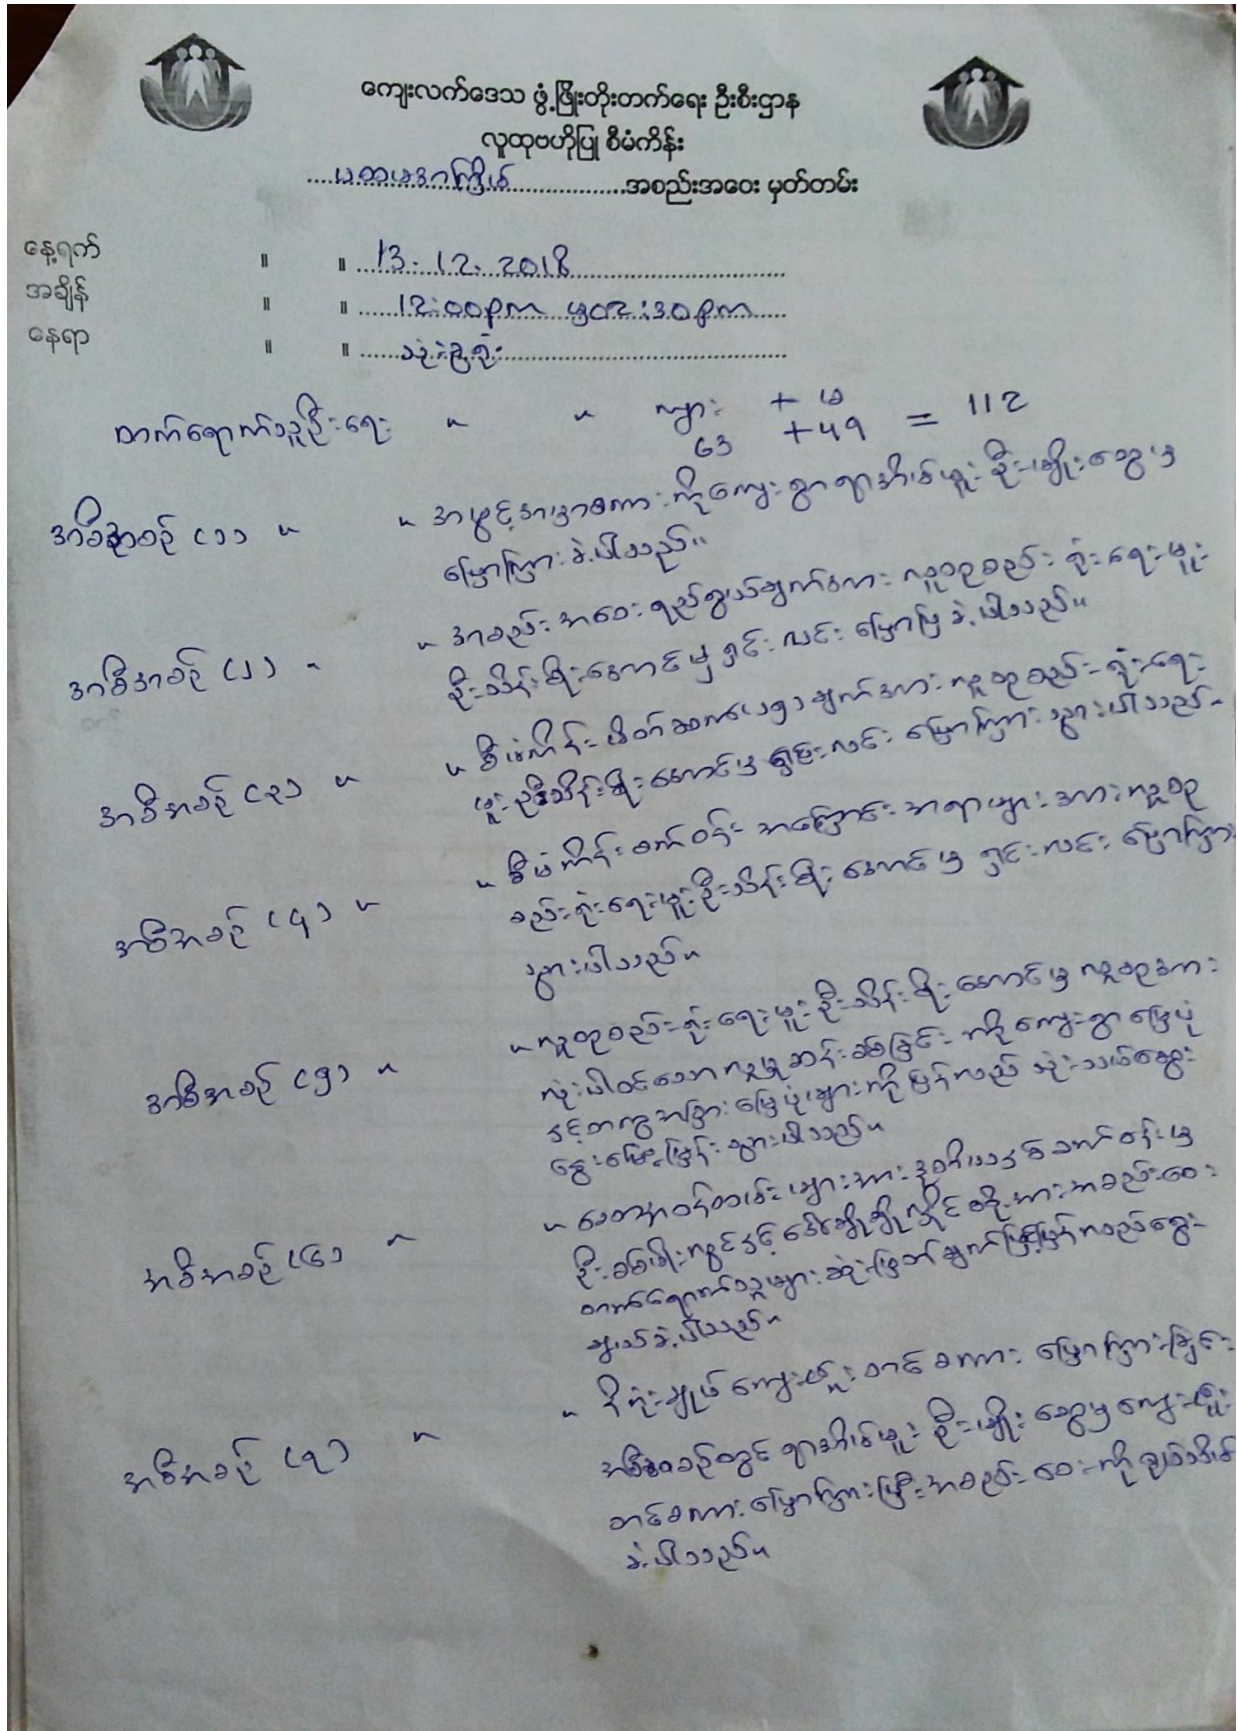 ကျေးလက်ဒေသ ဖွံ့ဖြိုးတိုးတက်ရေး ဦးစီးဌာန
လူထုဗဟိုပြု စီမံကိန်း
ပထမအကြိမ် အစည်းအဝေး မှတ်တမ်း
နေ့ရက် ။ ။ 13.12.2018
အချိန် ။ ။ 12:00pm မှ 02:30pm
နေရာ ။ ။
တက်ရောက်သူဦးရေ ။ ။ ကျား + မ
63 +49 = 112
အစီအစဉ် (၁) ။ ။ အဖွင့်အမှာစကားကို ကျေးရွာရာအိမ်မှူး ဦးမျိုးဆွေမှ
ပြောကြားခဲ့ပါသည်။
အစီအစဉ် (၂) ။ ။ အစည်းအဝေး ရည်ရွယ်ချက်အား လူထုစည်းရုံးရေးမှူး
ဦးသိန်းဇိုးအောင်မှ ရှင်းလင်းပြောပြခဲ့ပါသည်။
အစီအစဉ် (၃) ။ ။ စီမံကိန်း မိတ်ဆက် ချက်အား လူထုစည်းရုံးရေး
မှူး ဦးသိန်းဇိုးအောင်မှ ရှင်းလင်း ပြောကြားသွားပါသည်။
အစီအစဉ် (၄) ။ ။ စီမံကိန်းစက်ဝန်း အကြောင်းအရာများအား လူထု
စည်းရုံးရေးမှူး ဦးသိန်းဇိုးအောင်မှ ရှင်းလင်း ပြောကြား
သွားပါသည်။
အစီအစဉ် (၅) ။ ။ လူထုစည်းရုံးရေးမှူး ဦးသိန်းဇိုးအောင်မှ လူထုအား
လုံးပါဝင်သော လူမှုဆန်းစစ်ခြင်းကို ကျေးရွာမြေပုံ
နှင့်တကွ အခြားမြေပုံများကို ပြန်လည် သုံးသပ်ဆွေး
နွေး သွားပါသည်။
အစီအစဉ် (၆) ။ ။ စေတနာ့ဝန်ထမ်းများအား ဒုတိယနှစ်စက်ဝန်းမှ
အစည်းဝေး
တက်ရောက်သူများ ဆုံးဖြတ်ချက်ဖြင့် ပြန်လည်ရွေး
ချယ်ခဲ့ပါသည်။
အစီအစဉ် (၇) ။ ။ နိဂုံးချုပ် ကျေးဇူးတင်စကား ပြောကြားခြင်း
အစီအစဉ်တွင် ရာအိမ်မှူး ဦးမျိုးဆွေမှ ကျေးဇူး
တင်စကား ပြောကြားပြီး အစည်းဝေးကို ရုပ်သိမ်း
ခဲ့ပါသည်။